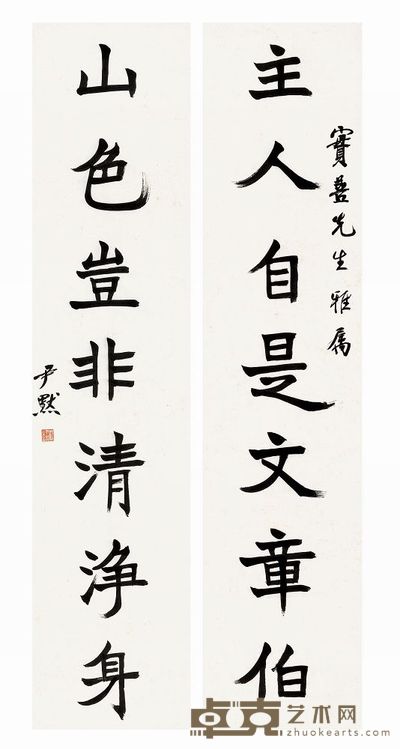 主人自是文章伯
寶善先生雅属
山色豈非清淨身
尹默
卓克艺术网
zhuokearts.com